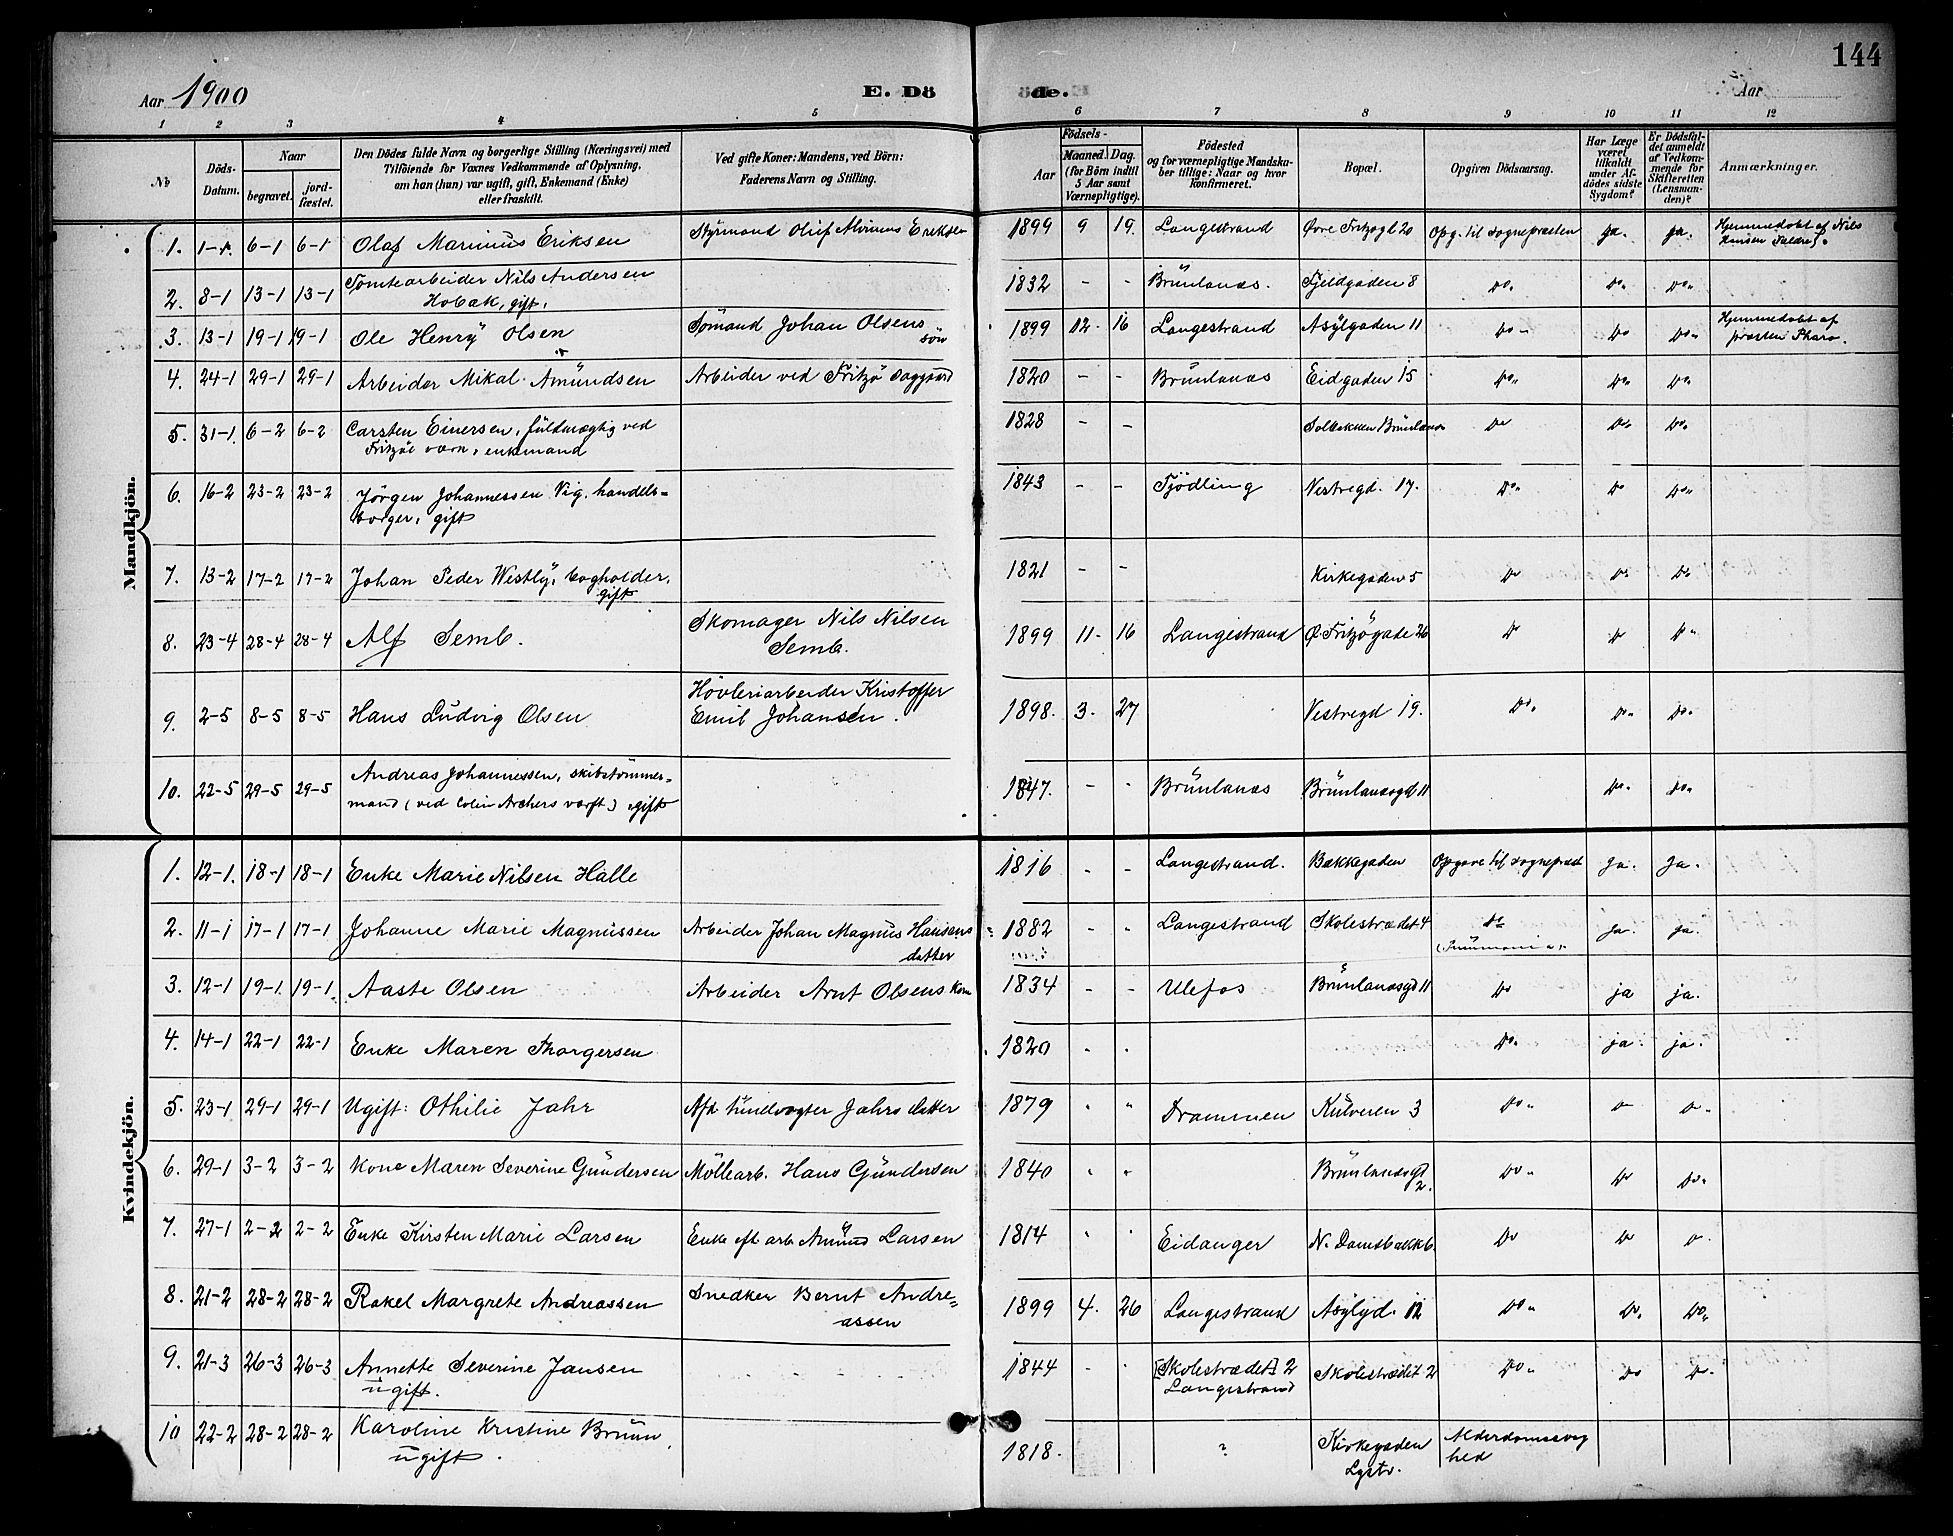 144
Aar 1900
E. Dö
de.
Aar
1 2 3 4 5 6 7 8 9 10 11 12
№
Döds-Datum.
Naar
begravet.
jord-fæstet.
Den Dödes fulde Navn og borgerlige Stilling (Næringsvei) med
Tilföiende for Voxnes Vedkommende af Oplysning,
om han (hun) var ugift, gift, Enkemand (Enke)
eller fraskilt.
Ved gifte Koner: Mandens, ved Börn:
Faderens Navn og Stilling.
Födsels-
Aar
Maaned. Dag.
(for Börn indtil
5 Aar samt
Værnepligtige).
Födested
og for værnepligtige Mandska-
ber tillige: Naar og hvor
konfirmeret.
Bopæl.
Opgiven Dödsaarsag.
Har Læge
været
tilkaldt
under Af-
dödes sidste
Sygdom?
Er Dödsfal-
det anmeldt
af Vedkom-
mende for
Skifteretten
(Lensman-
den)?
Anmærkninger.
Mandkjön.
1. 1-1. 6-1 6-1 Olaf Marinius Eriksen Styrmand Oluf Eriksen 1899 9 19. Langestrand Övre Fritzögt 20 Opg. til sognepresten ja. ja. Hjemmedöbt af Nils
2. 8-1 13-1 13-1 Tomtearbeider Nils Andersen
Hobæk, gift, 1832 - - Brünlanæs. Fjeldgaden 8 Do. Do. Do.
3. 13-1 19-1 19-1 Ole Henry Olsen Sömand Johan Olsens
sön 1899 12. 16 Langestrand Asylgaden 11 Do. Do Do. Hjemmedöbt af
presten
4. 24-1 29-1 29-1 Arbeider Mikal Amündsen Arbeider ved Fritzö 1820 - - Brünlanæs Eidgaden 15 Do. Do. Do.
5. 31-1. 6-2 6-2 Carsten Einersen, füldmægtig ved
Fritzöe værn, enkemand 1828 - - Solbakken Brünlanæs Do Do. Do.
6. 16-2 23-2 23-2 Jörgen Johannessen Vig, handels=
borger, gift 1843 - - Tjödling Vestregd. 17. Do. Do Do.
7. 13-2 17-2 17-2 Johan Peder Westly, bogholder,
gift 1821 - - Kirkegaden 5 Do Do Do
8. 23-4 28-4 28-4 Alf Semb. Skomager Nils Nilsen
Semb. 1899 11- 16 Langestrand Ö. Fritzögade 26 Do Do Do
9. 2-5 8-5 8-5 Hans Ludvig Olsen Hövleriarbeider Kristoffer
Emil Johansen. 1898. 3. 27 Vestregd 19. Do. Do. Do.
10. 22-5 29-5 29-5 Andreas Johannessen, skibstömmer=
mand (ved Colin Archers værft), gift 1847. - - Brünlanæs Brünlanæsgd 11 Do. Do.
Kvindekjön.
1. 12-1. 18-1 18-1 Enke Marie Nilsen Halle 1816 - - Langestrand. Bakkegaden Opgave til sogneprest ja. ja.
2. 11-1 17-1 17-1 Johanne Marie Magnüssen Arbeider Johan Magnus Hansens
datter 1882 - - Langestrand Skolestrædet 4 Do ja. ja.
3. 12-1 19-1. 19-1. Aaste Olsen Arbeider Arnt Olsens kone 1834 - - Ulefos Brünlanæsgd 11 Do ja ja.
4. 14-1 22-1 22-1 Enke Maren Thorgersen 1820 - - Do. ja ja.
5. 23-1 29-1 29-1 Ugift: Othilie Jahr Afd. Jahrs datter 1879 - - Drammen Külveien 3 Do. Do Do.
6. 29-1 3-2 3-2 Kone Maren Severine Gündersen Möllearb. Hans Gündersen 1840 - - Brünlanæsgd
2. Do. Do Do.
7. 27-1 2-2 2-2 Enke Kirsten Marie Larsen Enke eft arb. Amünd Larsen 1814 - - Eidanger N. Damsbakk 6. Do Do Do.
8. 21-2 28-2 28-2 Rakel Margrete Andreassen Snedker Bernt Andre=
assen 1899 4. 26 Langestrand Asylgd. 12 Do. Do. Do.
9. 21-3 26-3 26-3 Annette Severine Jansen
ugift. 1844 - - [Skolestrædet] 2
Langestrand Skolestrædet 2 Do. Do Do.
10 22-2 28-2 28-2 Karoline Kristine Bruun,
ugift. 1818. ? Kirkegaden
Lgstr. Alderdomssvag
hed